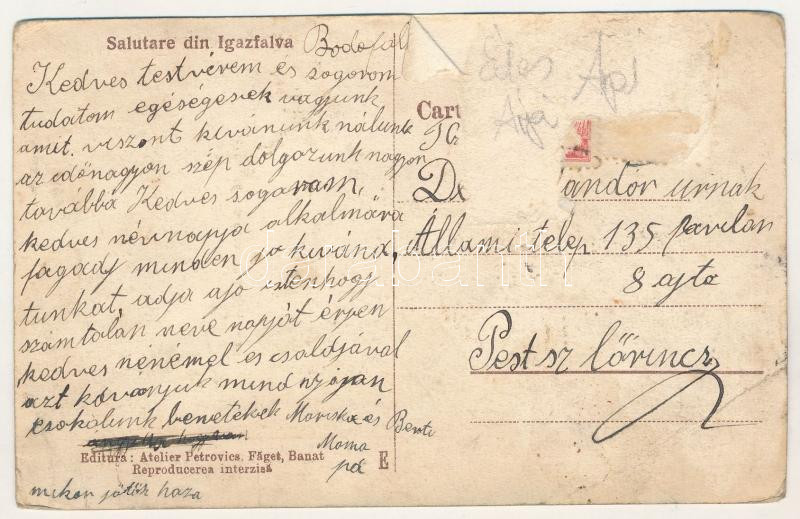 Salutare din Igazfalva
Kedves testvérem és sogorom
tudatom egéségesek vagyunk
amit. viszont kivánunk nálunk
az idönagyon szép dolgozunk nagyon
továbbá Kedves sogoram,
kedves névnapja alkalmára
fagadj minden jo kivánd,
tunkat adja ajo istenhogy
számtalan neve napját érjen
kedves nénémel és csaldjával
azt kivánjuk mindnyájan
csokolunk benetekek Mariska és Benti
Mama
pá
Editura: Atelier Petrovics, Făget, Banat
Reproducerea interzisă
E
mikor jötök haza
Édes Api
Cart
ándór urnak
Állami telep 135 pavilon
8 ajto
Pestsz lőrincz